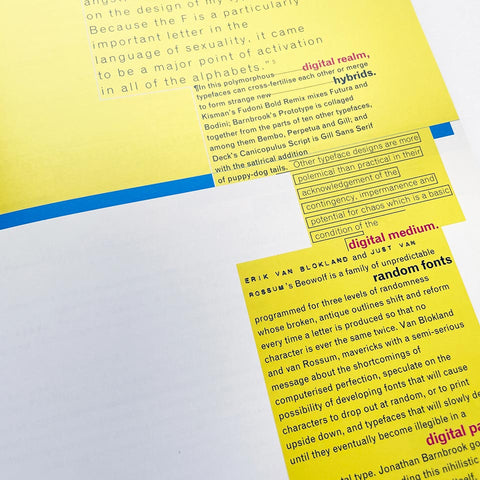 on the design of my
Because the F is a particularly
important letter in the
language of sexuality, it came
to be a major point of activation
in all of the alphabets."5
In this polymorphous digital realm,
typefaces can cross-fertilise each other or merge
to form strange new hybrids.
Kisman's Fudoni Bold Remix mixes Futura and
Bodini; Barnbrook's Prototype is collaged
together from the parts of ten other typefaces,
among them Bembo, Perpetua and Gill; and
Deck's Canicopulus Script is Gill Sans Serif
with the satirical addition
of puppy-dog tails. Other typeface designs are more
polemical than practical in their
acknowledgement of the
contingency, impermanence and
potential for chaos which is a basic
condition of the
digital medium.
ERIK VAN BLOKLAND and JUST VAN
ROSSUM's Beowolf is a family of unpredictable
random fonts
programmed for three levels of randomness
whose broken, antique outlines shift and reform
every time a letter is produced so that no
character is ever the same twice. Van Blokland
and van Rossum, mavericks with a semi-serious
message about the shortcomings of
computerised perfection, speculate on the
possibility of developing fonts that will cause
characters to drop out at random, or to print
upside down, and typefaces that will slowly
until they eventually become illegible in a
digital
type. Jonathan Barnbrook
this nihilistic